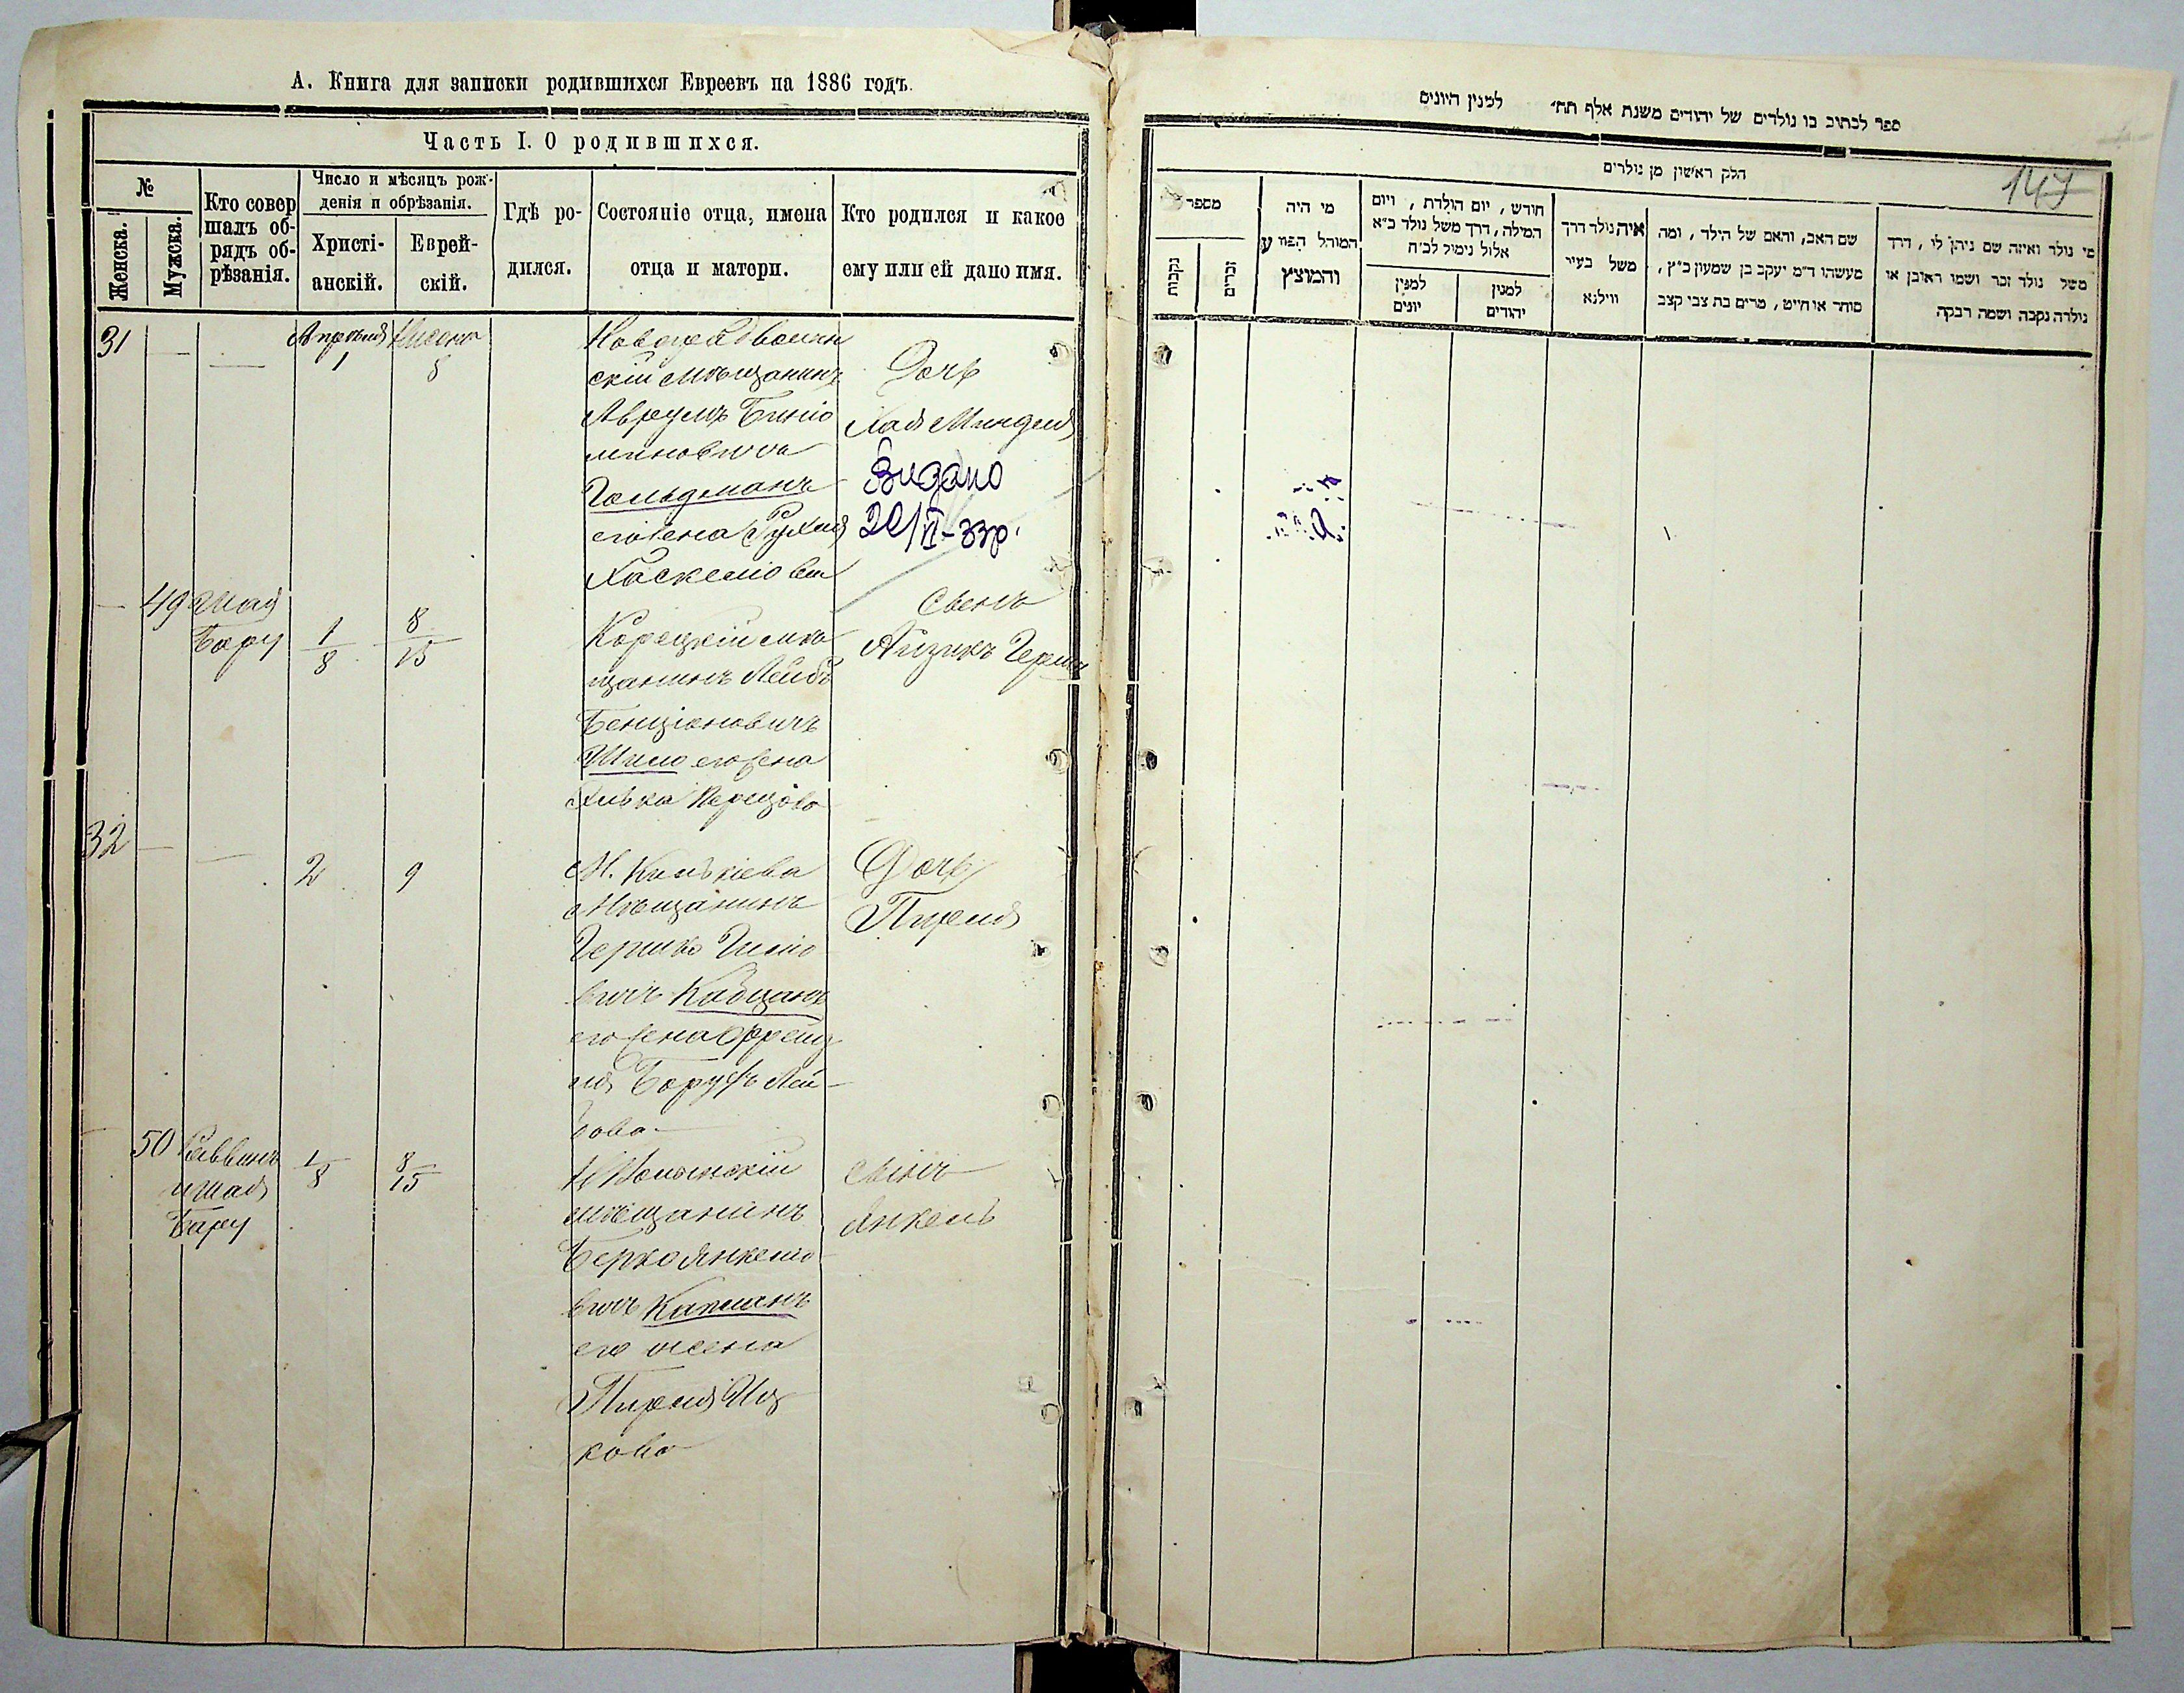 А. Книга для записки родившихся Евреевъ на 1886 годъ.
Часть I. О родившихся.
№
Женска.
Мужска.
Кто совер
шалъ об-
рядъ об-
рѣзанія.
Число и мѣсяцъ рож-
денія и обрѣзанія.
Христі-
анскій.
Еврей-
скій.
Гдѣ ро-
дился.
Состояніе отца, имена
отца и матери.
Кто родился и какое
ему или ей дано имя.
31
Апрѣля
1
Нисона
8
скій мѣщанинъ
Аврумъ Бинio
миновичъ
Гольдманъ
его жена Рухля
Хаскеліова
Дочь
Хая Миндля
Видано
20/VI-33р.
49
Шая
Бару
1
8
8
15
Корецкій мѣ
щанинъ Лейбъ
Бенціоновичъ
Шило его жена
Хивка Перецова
Сынъ
Айзикъ Герш
32
2
9
Мѣщанинъ
Гершко
вичъ Кабцанъ
его жена Фрейд
ля Борухъ Лей
бова
Дочь
Перля
50
Раввинъ
и Шая
Бару
1
8
8
15
Н Волынскій
мѣщанинъ
Берко Янкеліо
вичъ Капланъ
его жена
Перля Иц
кова
сынъ
Янкель
ספר לכתוב בו נולדים של יהודים משנת אלף תת׳ למנין היונים
147
חלק ראשון מן נולדים
מספר
נקבות
זכרים
מי היה
המוהל הפורע
והמוצץ
חודש, יום הולדת, ויום
המילה, דרך משל נולד כ״א
אלול נימול לכ״ח
למנין
יונים
למנין
יהודים
איה נולד דרך
משל בעיר
ווילנא
שם האב, והאם של הילד, ומה
מעשהו ד״מ יעקב בן שמעון כ״ץ,
סוחר או חייט, מרים בת צבי קצב
מי נולד ואיזה שם ניתן לו, דרך
משל נולד זכר ושמו ראובן או
נולדה נקבה ושמה רבקה